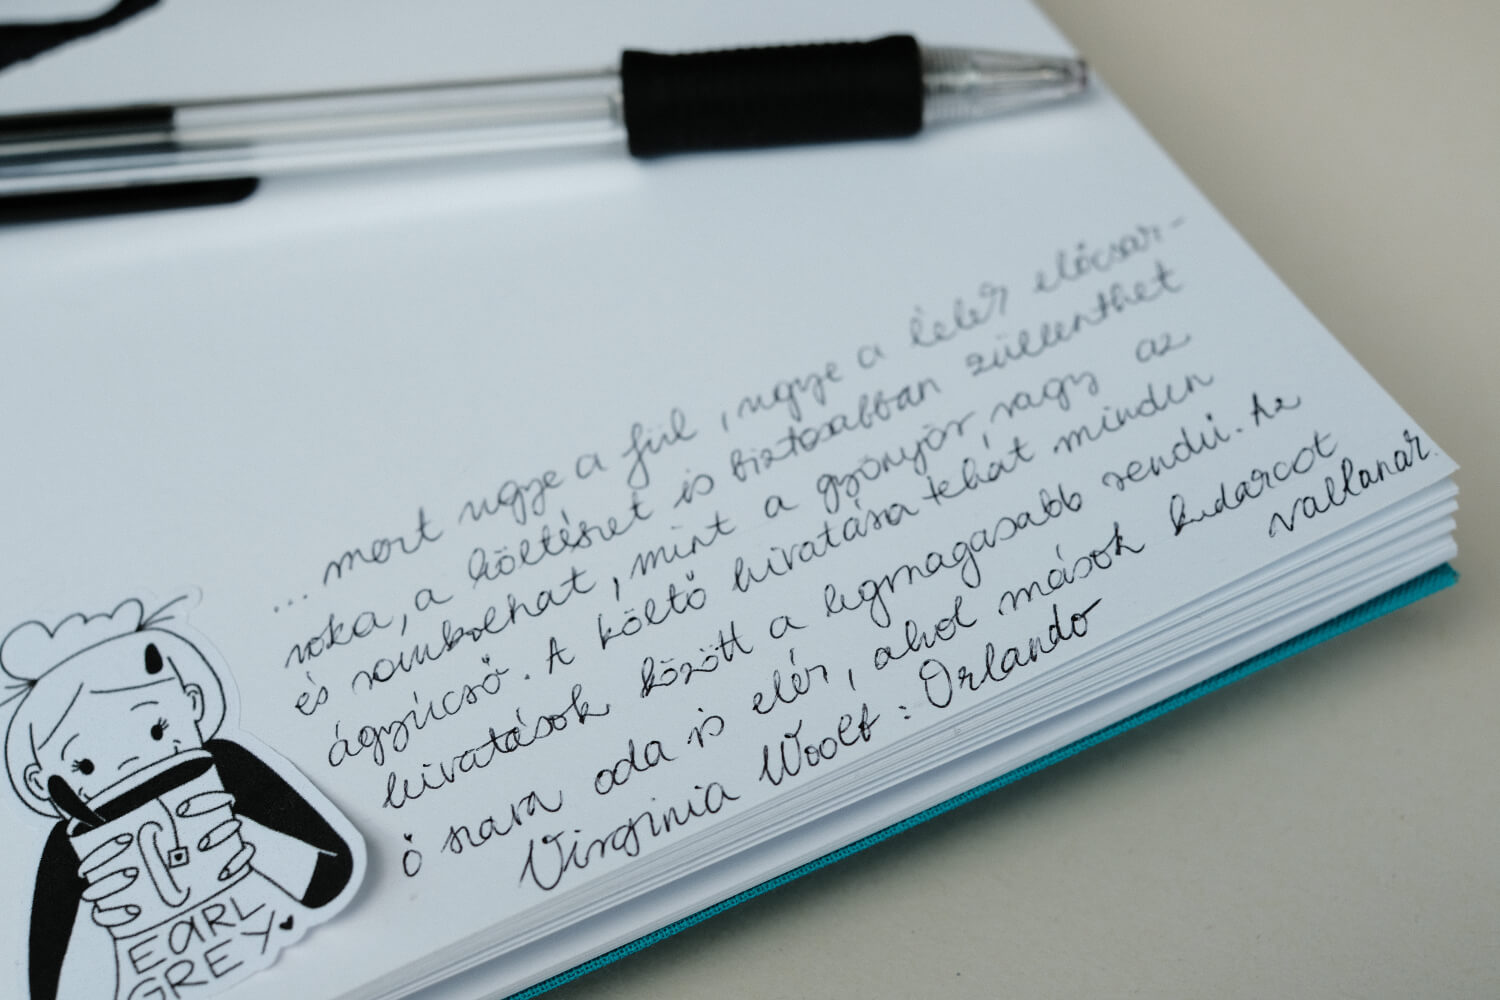 ...mert ugye a fül, ugye a lélek előcsar-
noka, a költészet is biztosabban zülleszthet
és rombolhat, mint a gyönyör, vagy az
ágyúcső. A költő hivatása tehát minden
hivatások között a legmagasabb rendű. Az
ő szava oda is elér, ahol mások kudarcot
vallanak.
Virginia Woolf: Orlando
EARL
GREY